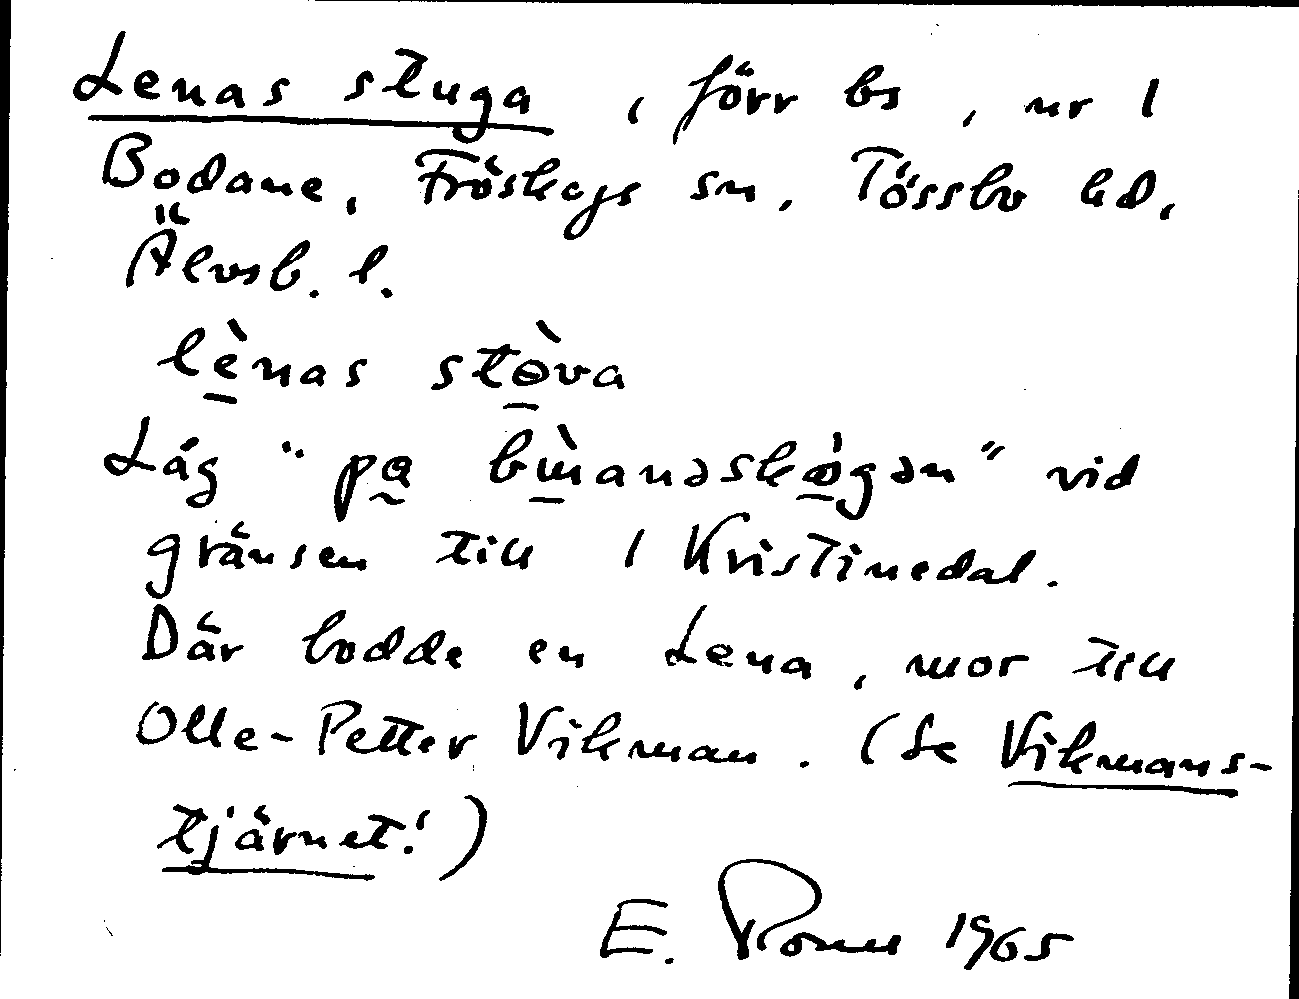 Lenas stuga, förr bs, nr 1
Bodane, Fröskogs sn, Tössbo hd,
Älvsb. l.
lènas stòva
Låg "pa
vid
gränsen till 1 Kristinedal.
Där bodde en Lena, mor till
Olle-Petter Vikman. (Se Vikmans-
tjärnet!)
E. 1965